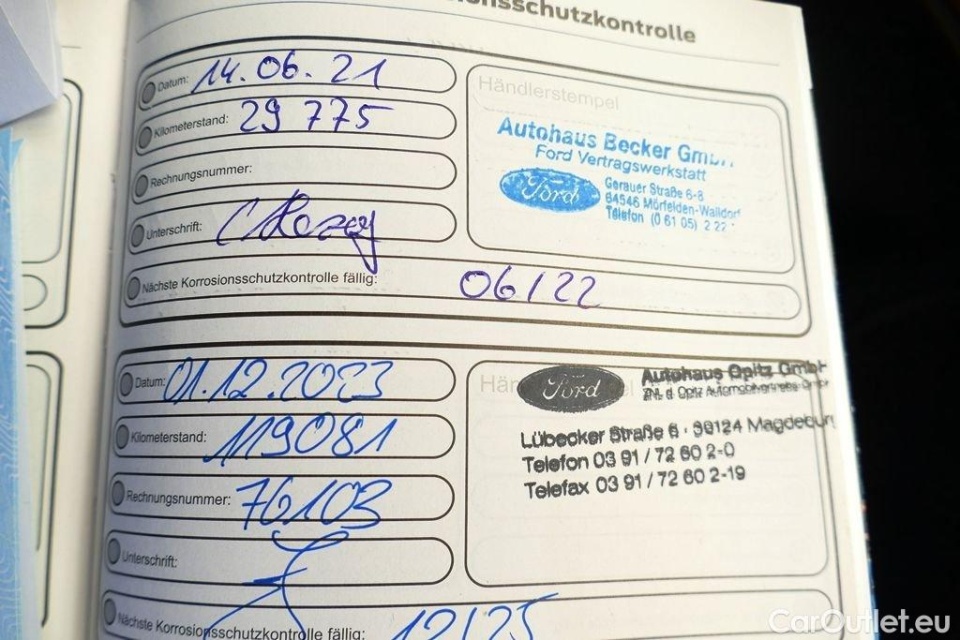 onsschutzkontrolle
Datum: 14.06.21
Kilometerstand: 29 775
Rechnungsnummer:
Unterschrift:
Nächste Korrosionsschutzkontrolle fällig: 06/22
Händlerstempel
Autohaus Becker GmbH
Ford Vertragswerkstatt
Ford
Gerauer Straße 6-8
64546 Mörfelden-Walldorf
Telefon (0 61 05) 2 22
Datum: 01.12.2023
Kilometerstand: 119081
Rechnungsnummer: 76103
Unterschrift:
Nächste Korrosionsschutzkontrolle fällig: 12/25
Ford
Autohaus Opitz GmbH
ZNL d. Opitz Automobilvertriebs-GmbH
Lübecker Straße 8 · 39124 Magdebur
Telefon 03 91 / 72 60 2-0
Telefax 03 91 / 72 60 2-19
CarOutlet.eu